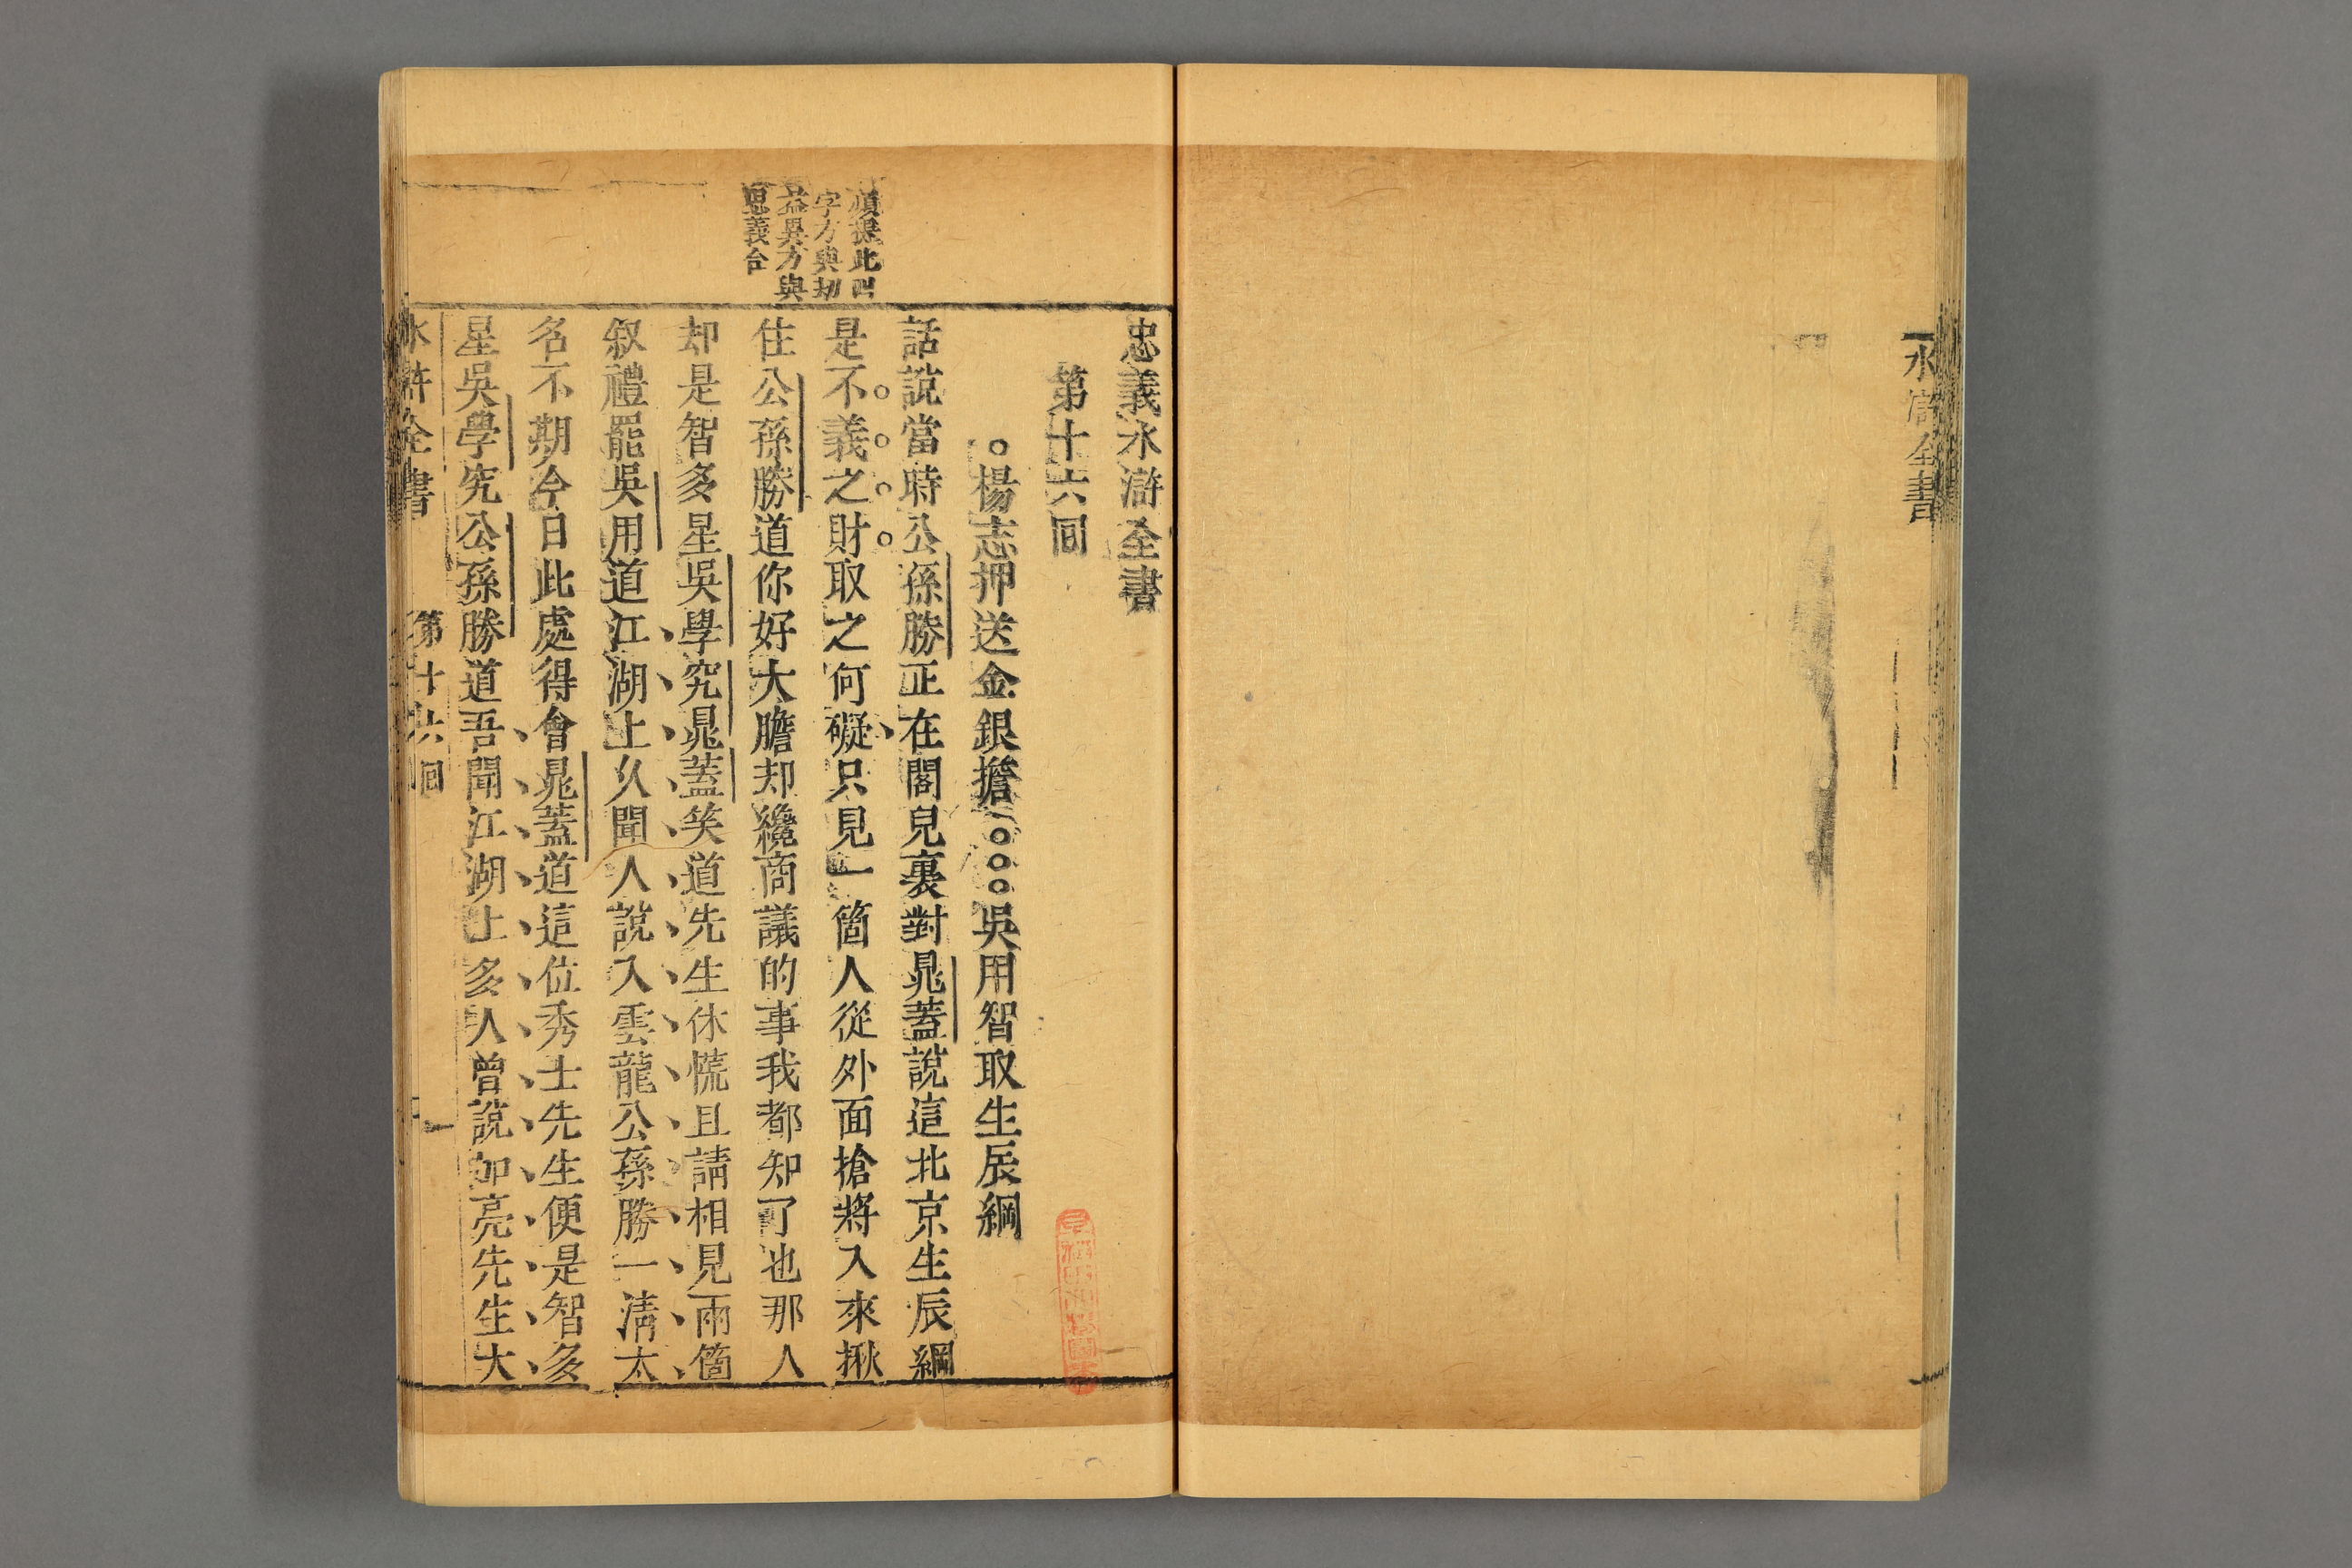 水滸全書
忠義水滸全書
第十六回
楊志押送金銀擔 吳用智取生辰綱
話說當時公孫勝正在閣兒裏對晁蓋說這北京生辰綱
是不義之財取之何礙只見一箇人從外面搶將入來揪
住公孫勝道你好大膽却纔商議的事我都知了也那人
却是智多星吳學究晁蓋笑道先生休慌且請相見兩箇
叙禮罷吳用道江湖上久聞人說入雲龍公孫勝一清大
名不期今日此處得會晁蓋道這位秀士先生便是智多
星吳學究公孫勝道吾聞江湖上多人曾說加亮先生大
須提此四
字方與劫
盜異方與
忠義合
水滸全書 第十六回 一